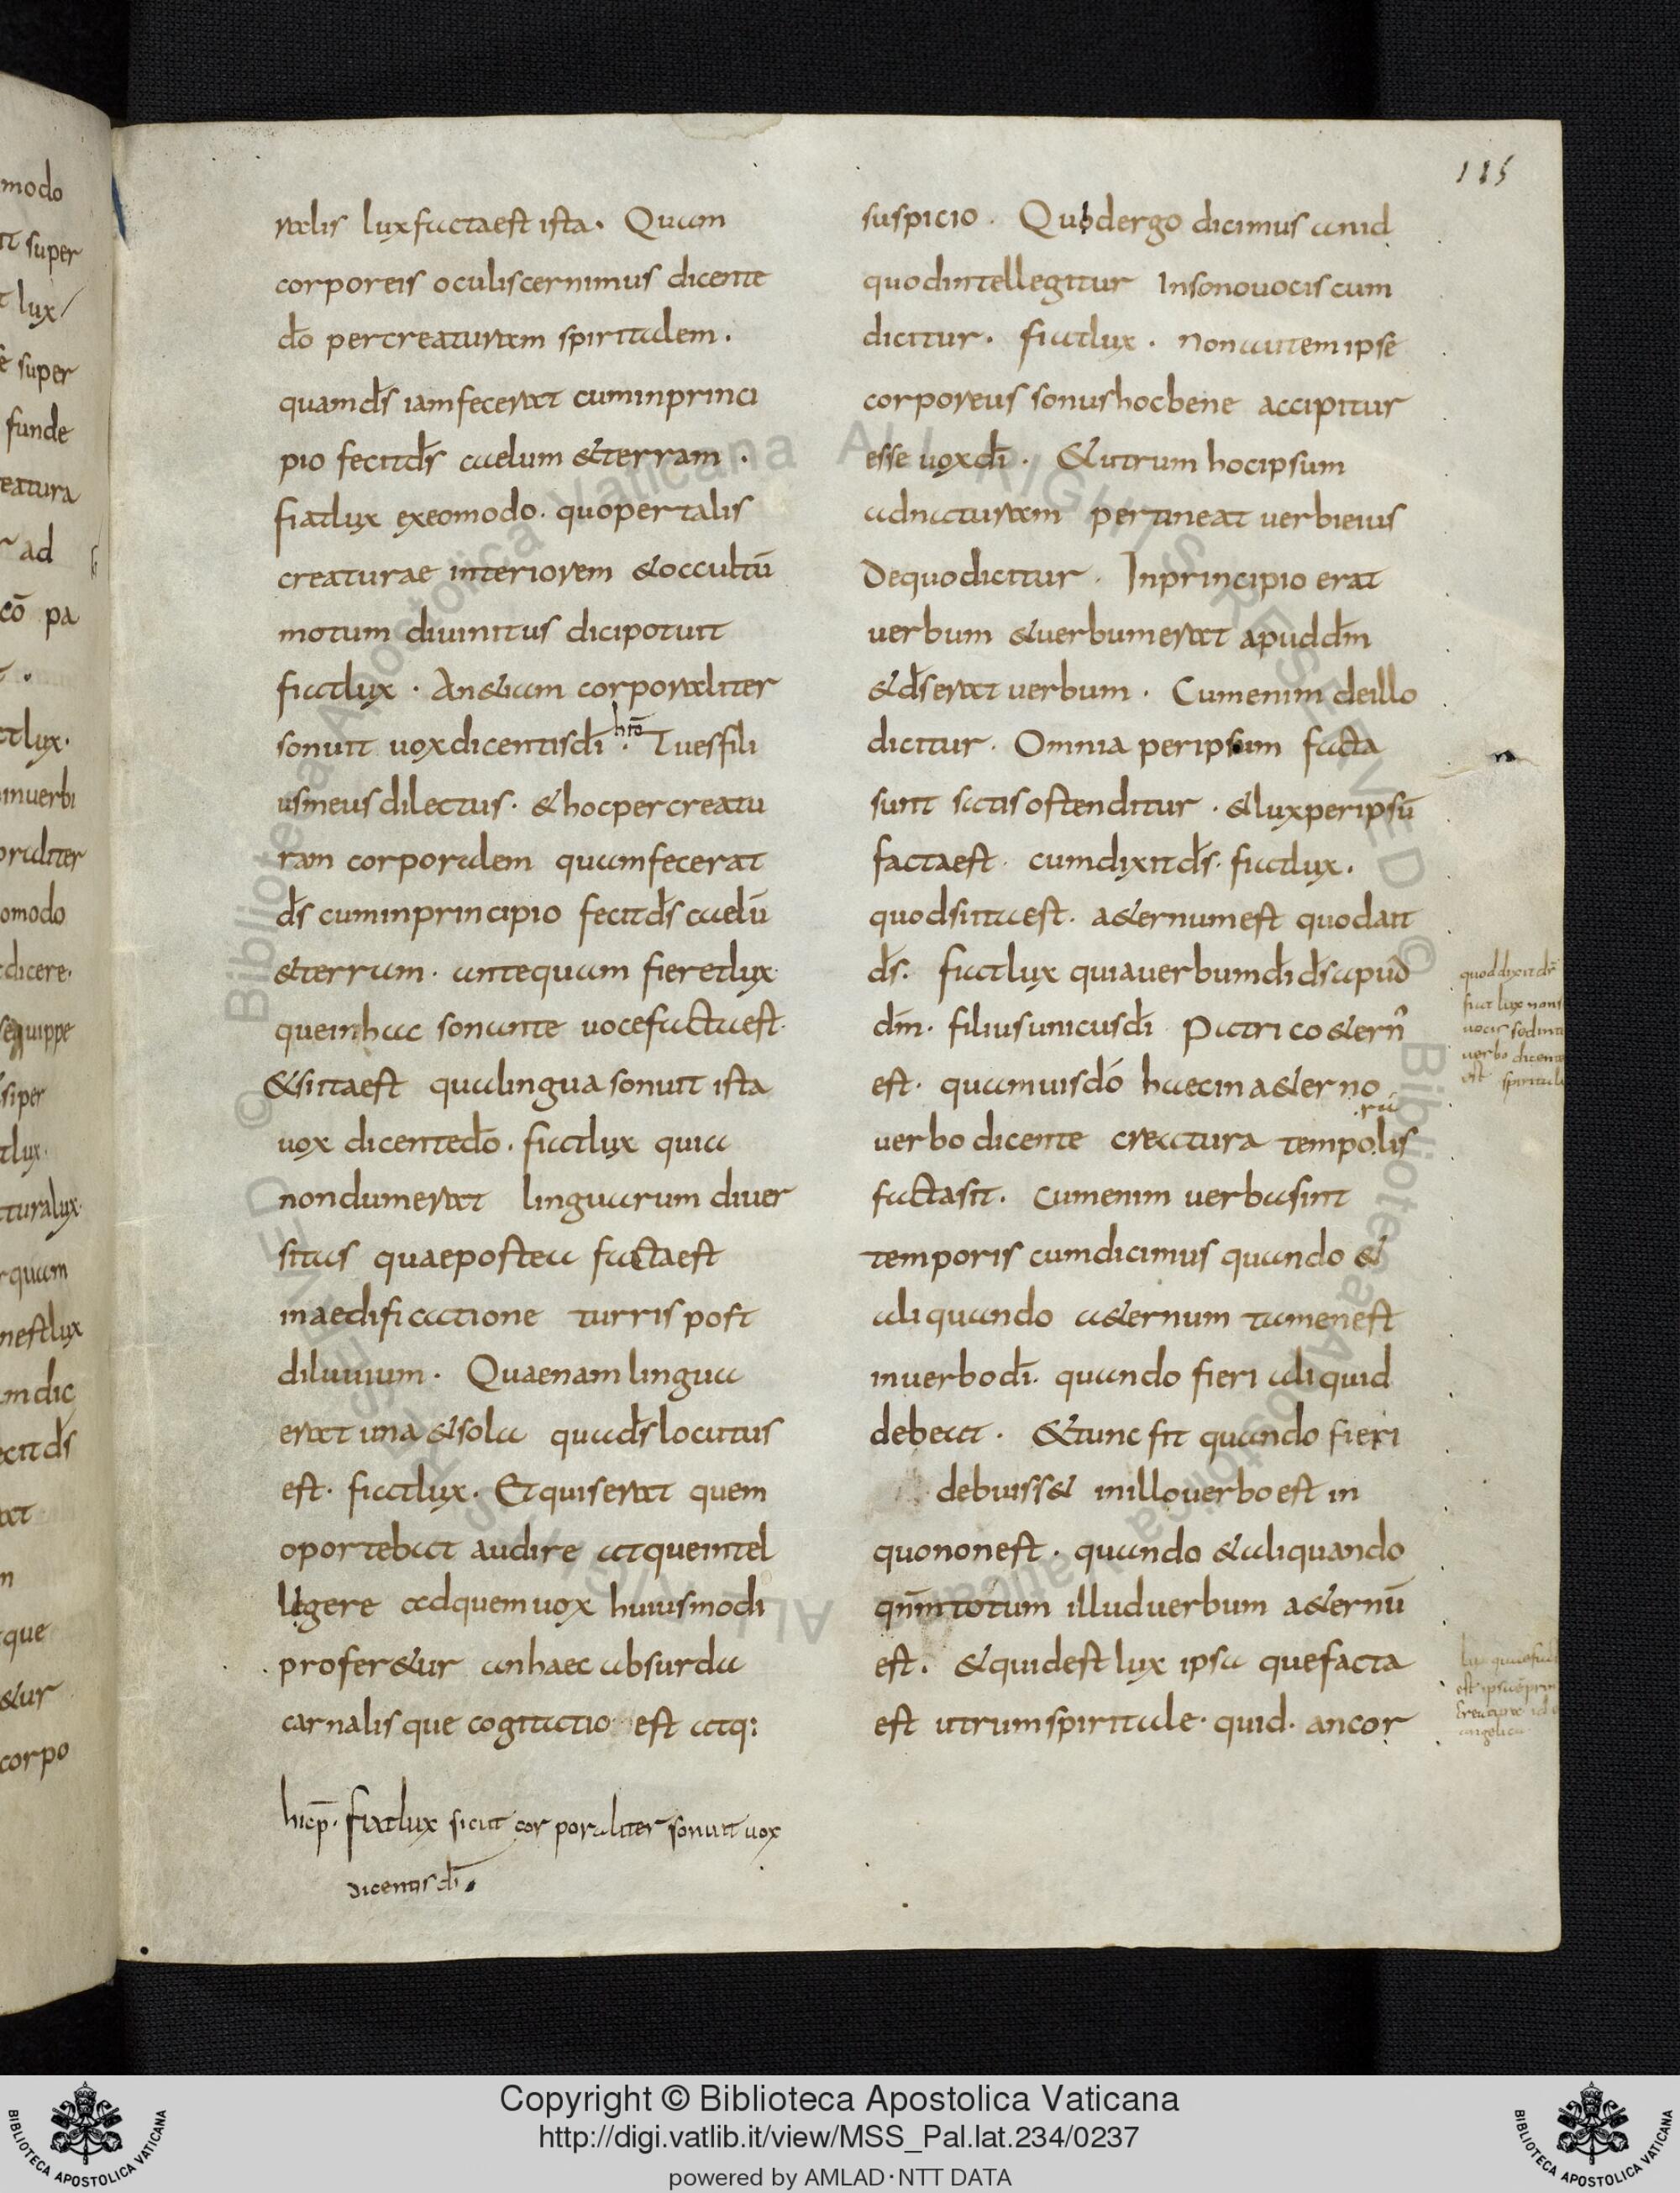 115
ralis lux facta est ista. Quam
corporeis oculis cernimus dicente
dō per creaturam spiritalem.
quam d̄s iam fecerat cum in princi
pio fecit d̄s caelum & terram.
fiat lux ex eo modo. quo per talis
creaturae interiorem & occultū
motum divinitus dici potuit
fiat lux. An &iam corporaliter
sonuit uox dicentis dī. Tu es fili
us meus dilectus. & hoc per creatu
ram corporalem quam fecerat
d̄s cum in principio fecit d̄s caelū
& terram. antequam fieret lux
que in hac sonante uoce facta est.
& si ita est qua lingua sonuit ista
uox dicente dō. fiat lux quia
nondum erat linguarum diuer
sitas quae postea facta est
in aedificatione turris post
diluuium. Quaenam lingua
erat una & sola qua d̄s locutus
est. fiat lux. Et quis erat quem
oportebat audire atque intel
legere ad quem uox huiusmodi
profer&ur an haec absurda
carnalisque cogitatio est atq:
hicp̄. fiat lux sicut corporaliter sonuit uox
dicentis dī.
suspicio. Quod ergo dicimus an id
quod intellegitur In sono uocis cum
dicitur. fiat lux. non autem ipse
corporeus sonus hoc bene accipitur
esse uox dī. & utrum hoc ipsum
ad naturam pertineat uerbi eius
De quo dicitur. In principio erat
uerbum & uerbum erat apud dm̄
& d̄s erat uerbum. Cum enim de illo
dicitur. Omnia per ipsum facta
sunt satis ostenditur. & lux per ipsū
facta est. cum dixit d̄s. fiat lux.
quod si ita est. a&ernum est quod ait
d̄s. fiat lux quia uerbum dī d̄s apud
dm̄. filius unicus dī Patri co&ern̄
est. quamuis dō haec in a&erno
uerbo dicente creatura tempo rā lis
facta sit. cum enim uerba sint
temporis cum dicimus quando &
aliquando a&ernum tamen est
in uerbo dī. quando fieri aliquid
debeat. & tunc fit quando fieri
debuiss& in illo uerbo est in
quo non est. quando & aliquando
qn̄m totum illud uerbum a&ernū
est. & quid est lux ipsa que facta
est utrum spiritale. quid. an cor
quod dixit d̄s
fiat lux non s
uocis sed int
uerbo dicent
est spiritali
Copyright © Biblioteca Apostolica Vaticana
http://digi.vatlib.it/view/MSS_Pal.lat.234/0237
powered by AMLAD·NTT DATA